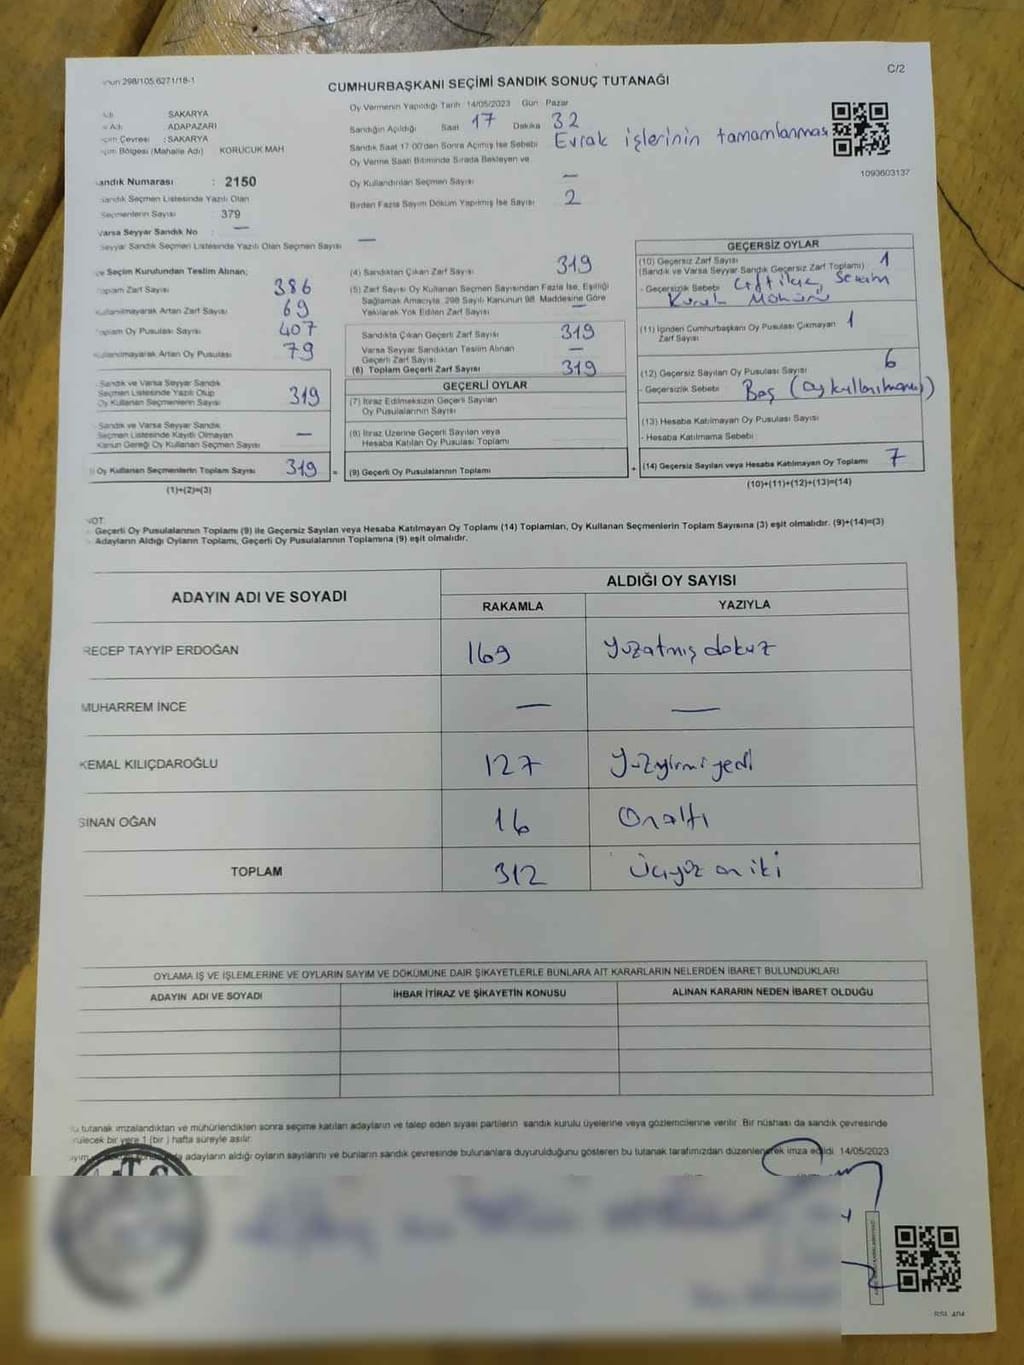 298/105,6271/18-1
C/2
CUMHURBAŞKANI SEÇİMİ SANDIK SONUÇ TUTANAĞI
SAKARYA
Adı ADAPAZARI
Çevresi : SAKARYA
Bölgesi (Mahalle Adı) KORUCUK MAH
Sandık Numarası : 2150
Sandık Seçmen Listesinde Yazılı Olan
Seçmenlerin Sayısı 379
Varsa Seyyar Sandık No : —
Seyyar Sandık Seçmen Listesinde Yazılı Olan Seçmen Sayısı —
Oy Vermenin Yapıldığı Tarih 14/05/2023 Gün Pazar
Sandığın Açıldığı Saat 17 Dakika 32
Sandık Saat 17.00'den Sonra Açılmış İse Sebebi Evrak işlerinin tamamlanması
Oy Verme Saati Bitiminde Sırada Bekleyen ve
Oy Kullandırılan Seçmen Sayısı —
Birden Fazla Sayım Döküm Yapılmış İse Sayısı 2
1093603137
Seçim Kurulundan Teslim Alınan;
Toplam Zarf Sayısı 386
Kullanılmayarak Artan Zarf Sayısı 69
Toplam Oy Pusulası Sayısı 407
Kullanılmayarak Artan Oy Pusulası 79
Sandık ve Varsa Seyyar Sandık
Seçmen Listesinde Yazılı Olup
Oy Kullanan Seçmenlerin Sayısı 319
Sandık ve Varsa Seyyar Sandık
Seçmen Listesinde Kayıtlı Olmayan
Kanun Gereği Oy Kullanan Seçmen Sayısı —
Oy Kullanan Seçmenlerin Toplam Sayısı 319 =
(1)+(2)=(3)
(4) Sandıktan Çıkan Zarf Sayısı 319
(5) Zarf Sayısı Oy Kullanan Seçmen Sayısından Fazla İse, Eşitliği
Sağlamak Amacıyla, 298 Sayılı Kanunun 98. Maddesine Göre
Yakılarak Yok Edilen Zarf Sayısı —
Sandıkta Çıkan Geçerli Zarf Sayısı 319
Varsa Seyyar Sandıktan Teslim Alınan
Geçerli Zarf Sayısı —
(6) Toplam Geçerli Zarf Sayısı 319
GEÇERLİ OYLAR
(7) İtiraz Edilmeksizin Geçerli Sayılan
Oy Pusulalarının Sayısı
(8) İtiraz Üzerine Geçerli Sayılan veya
Hesaba Katılan Oy Pusulası Toplamı
(9) Geçerli Oy Pusulalarının Toplamı +
GEÇERSİZ OYLAR
(10) Geçersiz Zarf Sayısı 1
(Sandık ve Varsa Seyyar Sandık Geçersiz Zarf Toplamı)
- Geçersizlik Sebebi Seçim
Kurulu Mührü
(11) İçinden Cumhurbaşkanı Oy Pusulası Çıkmayan 1
Zarf Sayısı
(12) Geçersiz Sayılan Oy Pusulası Sayısı 6
- Geçersizlik Sebebi Boş (oy kullanılmamış)
(13) Hesaba Katılmayan Oy Pusulası Sayısı
- Hesaba Katılmama Sebebi
(14) Geçersiz Sayılan veya Hesaba Katılmayan Oy Toplamı 7
(10)+(11)+(12)+(13)=(14)
NOT:
Geçerli Oy Pusulalarının Toplamı (9) ile Geçersiz Sayılan veya Hesaba Katılmayan Oy Toplamı (14) Toplamları, Oy Kullanan Seçmenlerin Toplam Sayısına (3) eşit olmalıdır. (9)+(14)=(3)
Adayların Aldığı Oyların Toplamı, Geçerli Oy Pusulalarının Toplamına (9) eşit olmalıdır.
ADAYIN ADI VE SOYADI
ALDIĞI OY SAYISI
RAKAMLA YAZIYLA
RECEP TAYYİP ERDOĞAN 169 Yüzatmış dokuz
MUHARREM İNCE — —
KEMAL KILIÇDAROĞLU 127 Yüzyirmi yedi
SİNAN OĞAN 16 Onaltı
TOPLAM 312 Üçyüz on iki
OYLAMA İŞ VE İŞLEMLERİNE VE OYLARIN SAYIM VE DÖKÜMÜNE DAİR ŞİKAYETLERLE BUNLARA AİT KARARLARIN NELERDEN İBARET BULUNDUKLARI
ADAYIN ADI VE SOYADI İHBAR İTİRAZ VE ŞİKAYETİN KONUSU ALINAN KARARIN NEDEN İBARET OLDUĞU
tutanak imzalandıktan ve mühürlendikten sonra seçime katılan adayların ve talep eden siyasi partilerin sandık kurulu üyelerine veya gözlemcilerine verilir. Bir nüshası da sandık çevresinde
bir yere 1 (bir) hafta süreyle asılır.
adayların aldığı oyların sayılarını ve bunların sandık çevresinde bulunanlara duyurulduğunu gösteren bu tutanak tarafımızdan düzenlenerek imza edildi. 14/05/2023